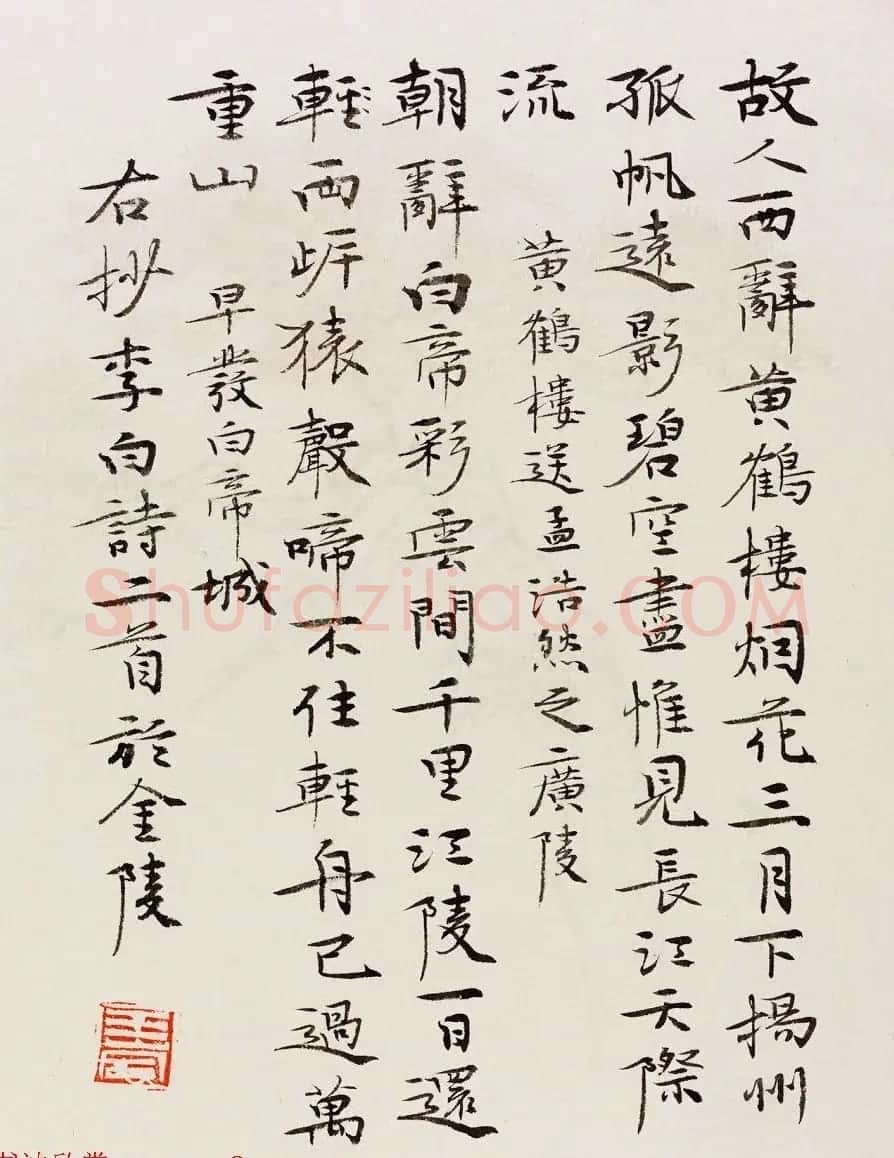 故人西辭黄鶴樓烟花三月下揚州
孤帆遠影碧空盡惟見長江天際
流 黄鶴樓送孟浩然之廣陵
朝辭白帝彩雲間千里江陵一日還
輕兩岸猿聲啼不住輕舟已過萬
重山 早發白帝城
右抄李白詩二首於金陵
Shufaziliao.COM